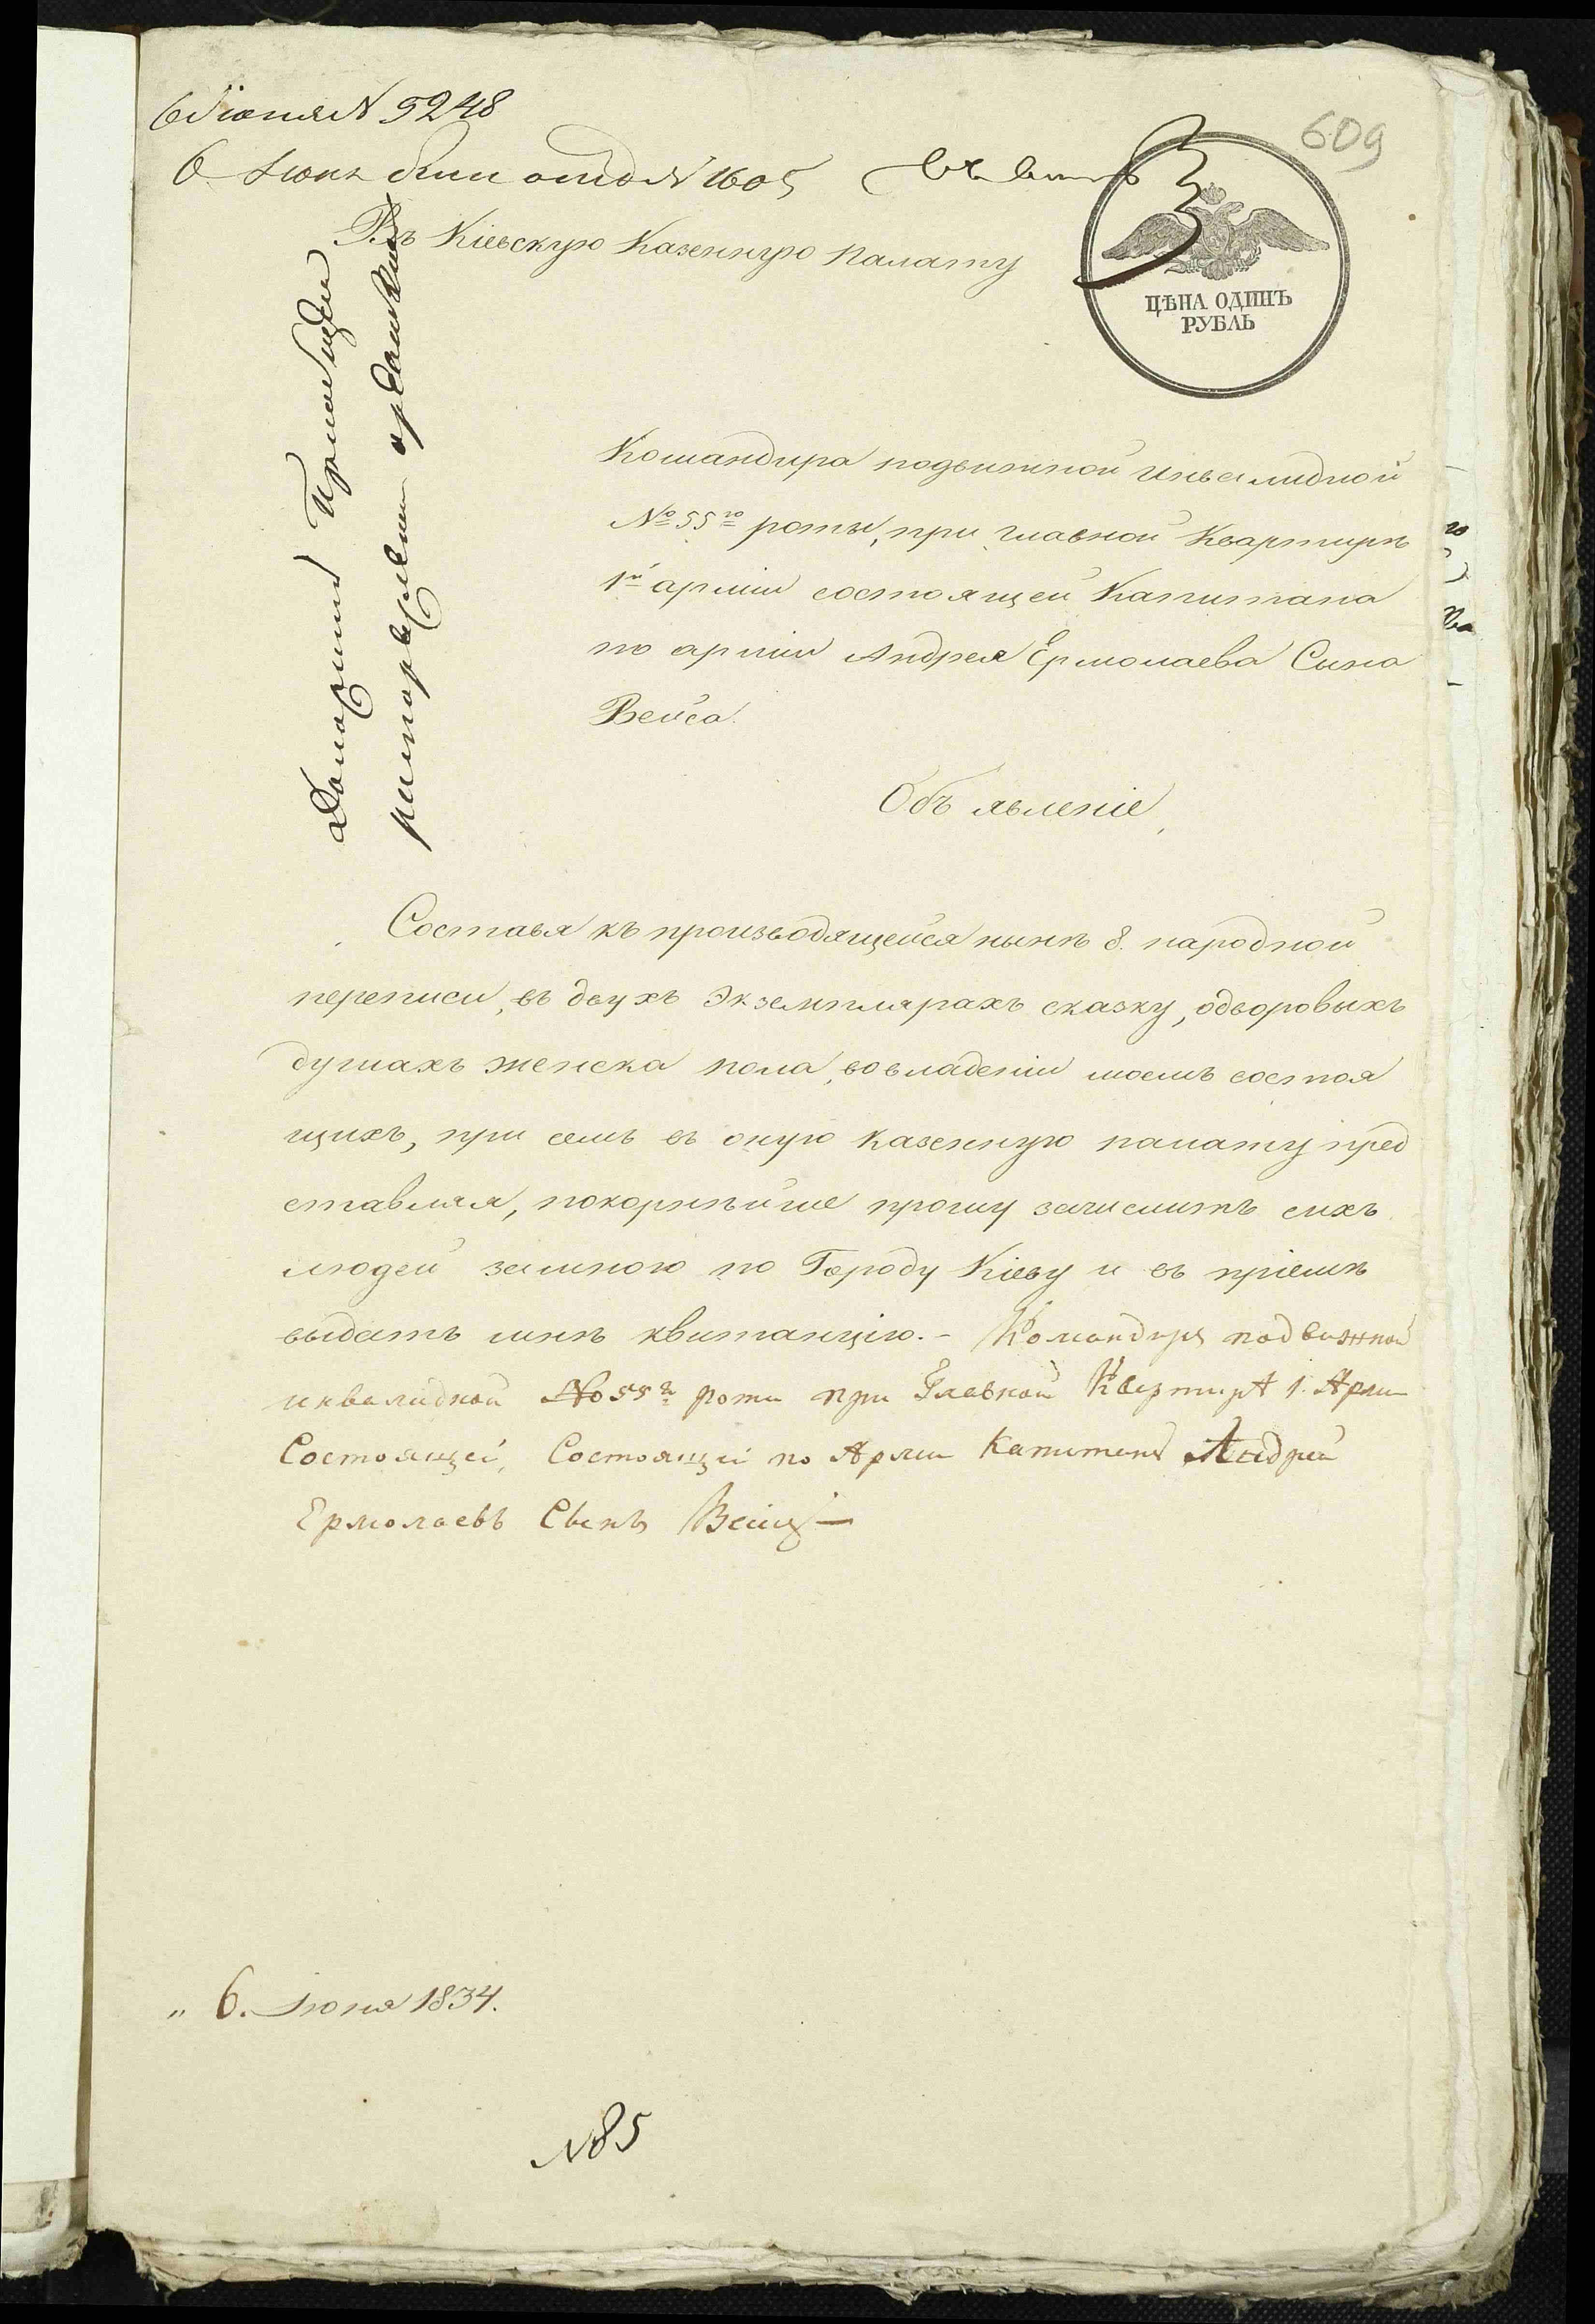 6 Іюня № 5248
6 Июня № 1605
609
Въ Кіевскую Казенную Палату
ЦѢНА ОДИНЪ
РУБЛЬ
Командира подвижной Инвалидной
№ 55го роты, при Главной Квартирѣ
1й арміи состоящей Капитана
по арміи Андрея Ермолаева Сына
Вейса.
Объявленіе
Составя къ производящейся нынѣ 8. народной
переписи, въ двухъ Экземплярахъ сказку, одворовыхъ
душахъ женска пола, вовладеніи моемъ состоя
щихъ, при семъ въ оную казенную палату пред
ставляя, покорнѣйше прошу зачислить сихъ
людей замною по Городу Кіеву и въ пріемѣ
выдать мнѣ квитанцію. – Командиръ подвижной
инвалидной № 55й роты при Главной Квартирѣ 1. Арми
Состоящей, Состоящій по Арми Капитанъ Андрей
Ермолаевъ Сынъ Вейсъ
„ 6. Іюня 1834.
№ 85